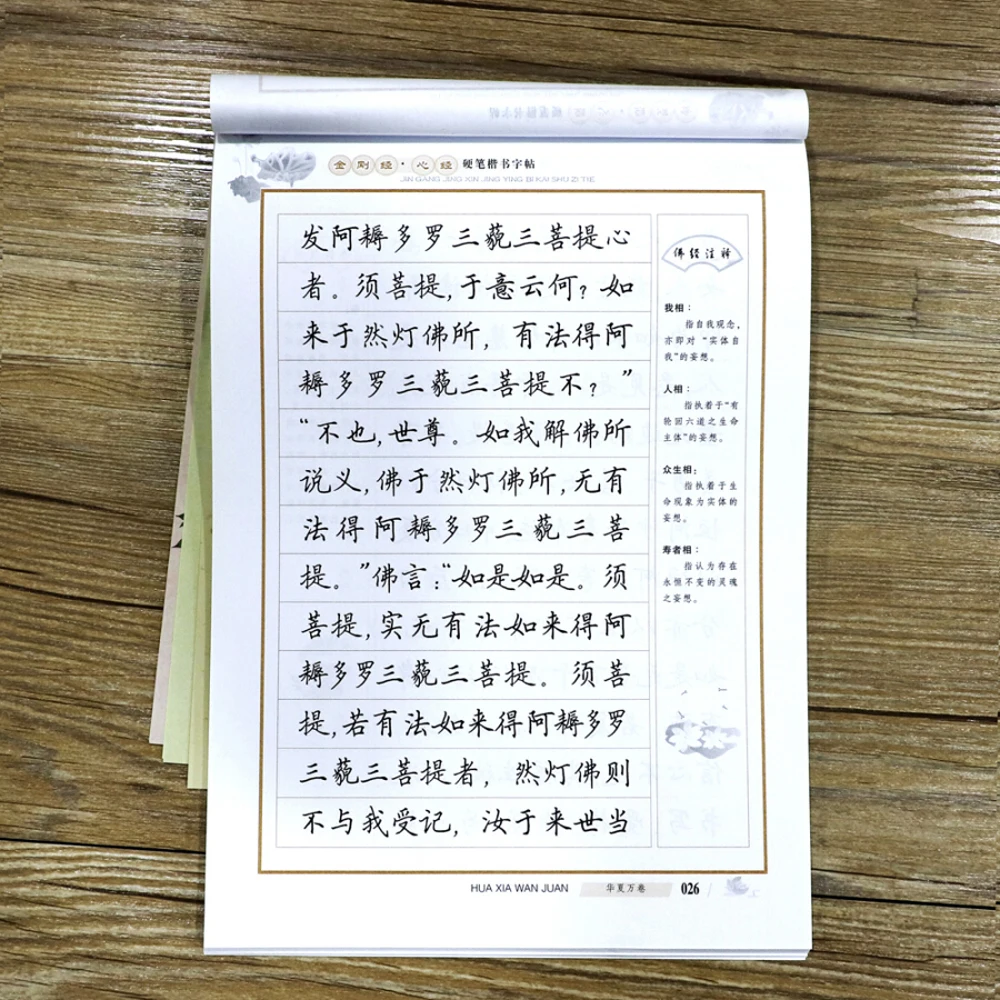 金刚经·心经 硬笔楷书字帖
JIN GANG JING XIN JING YING BI KAI SHU ZI TIE
发阿耨多罗三藐三菩提心
者。须菩提,于意云何?如
来于然灯佛所,有法得阿
耨多罗三藐三菩提不?”
“不也,世尊。如我解佛所
说义,佛于然灯佛所,无有
法得阿耨多罗三藐三菩
提。”佛言:“如是如是。须
菩提,实无有法如来得阿
耨多罗三藐三菩提。须菩
提,若有法如来得阿耨多罗
三藐三菩提者,然灯佛则
不与我受记,汝于来世当
佛经注释
我相:
指自我观念,
亦即对“实体自
我”的妄想。
人相:
指执着于“有
轮回六道之生命
主体”的妄想。
众生相:
指执着于生
命现象为实体的
妄想。
寿者相:
指认为存在
永恒不变的灵魂
之妄想。
HUA XIA WAN JUAN 华夏万卷 026